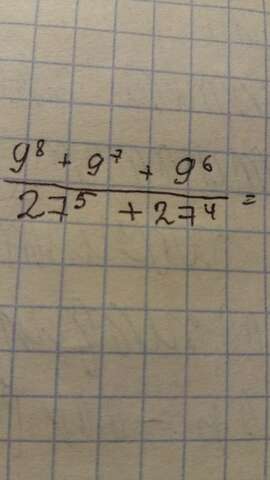 9⁸ + 9⁷ + 9⁶
27⁵ + 27⁴ =